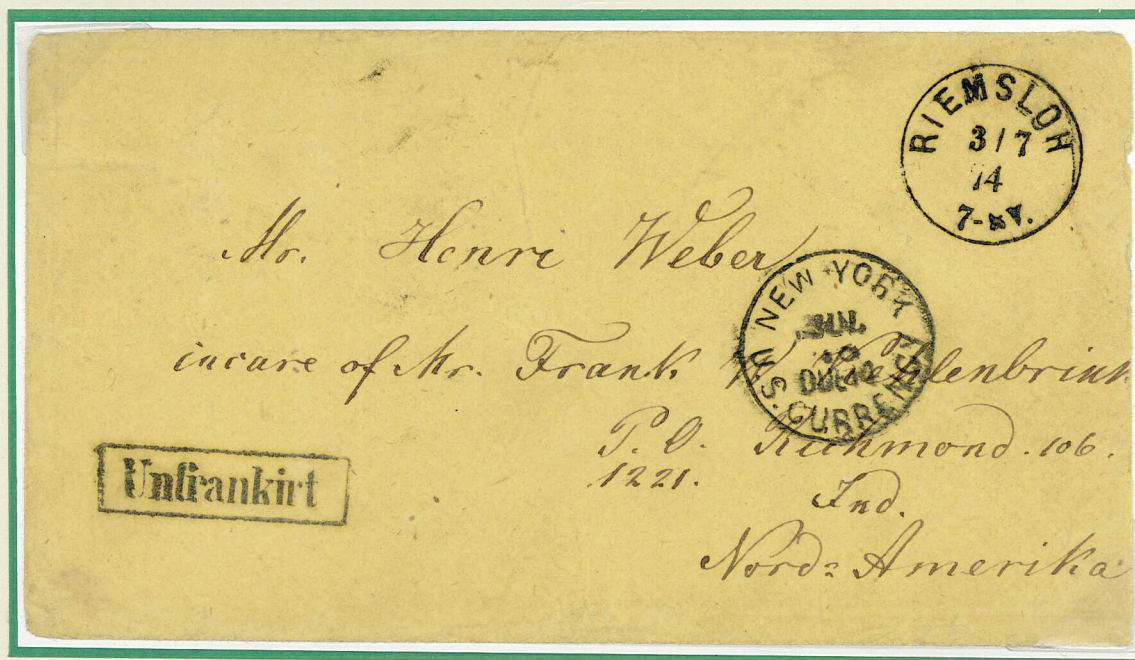 RIEMSLOH
3/7
74
7-8 V.
Mr. Henri Weber
NEW YORK
JUL
DUE
U.S. CURRENCY
incare of Mr. Frank
P. O. Richmond. 106.
1221.
Ind.
Unfrankirt
Nord=Amerika